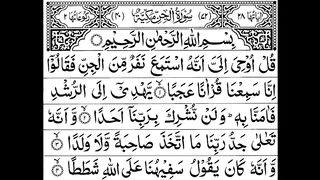 اٰیَاتُهَا ۲۸ (۷۲) سُوْرَةُ الْجِنِّ مَكِّیَّةٌ (۴۰) رُكُوْعَاتُهَا ۲
بِسْمِ اللهِ الرَّحْمٰنِ الرَّحِیْمِ
قُلْ اُوْحِیَ اِلَیَّ اَنَّهُ اسْتَمَعَ نَفَرٌ مِّنَ الْجِنِّ فَقَالُوْۤا
اِنَّا سَمِعْنَا قُرْاٰنًا عَجَبًا ۱ یَّهْدِیْۤ اِلَی الرُّشْدِ
فَاٰمَنَّا بِهٖ وَلَنْ نُّشْرِكَ بِرَبِّنَاۤ اَحَدًا ۲ وَّاَنَّهٗ
تَعٰلٰی جَدُّ رَبِّنَا مَا اتَّخَذَ صَاحِبَةً وَّلَا وَلَدًا ۳
وَّاَنَّهٗ كَانَ یَقُوْلُ سَفِیْهُنَا عَلَی اللهِ شَطَطًا ۴